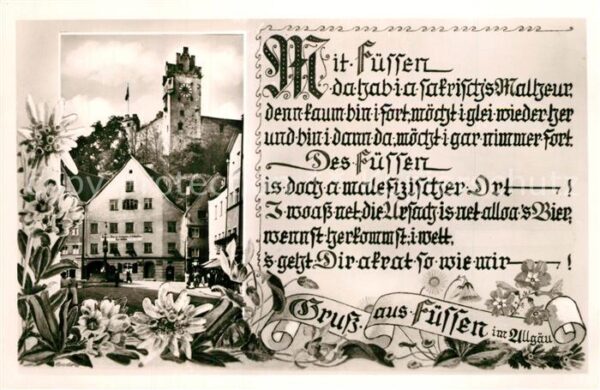 Mit Füssen
da hab i a sakrisch's Malheur,
denn kaum bin i fort, möcht i glei wieder her
und bin i dann da, möcht i gar nimmer fort.
Des Füssen
is doch a malefizischer Ort — !
I woaß net, die Ursach is net alloa's Bier,
wennst herkommst, i wett,
's geht Dir akrat so wie mir — !
Gruß aus Füssen im Allgäu